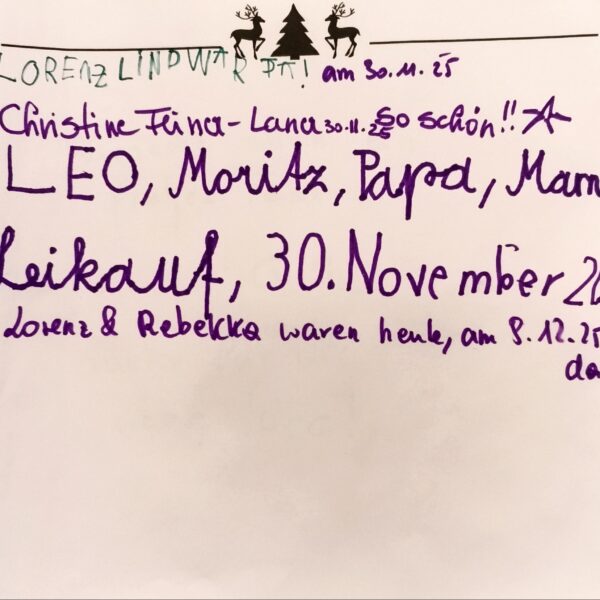 LORENZ LIND WAR DA! am 30.11.25
Christine Feina-Lana 30.11.25 so schön!!
LEO, Moritz, Papa, Mam
Leikauf, 30. November 20
Lorenz & Rebekka waren heute, am 8.12.25
da